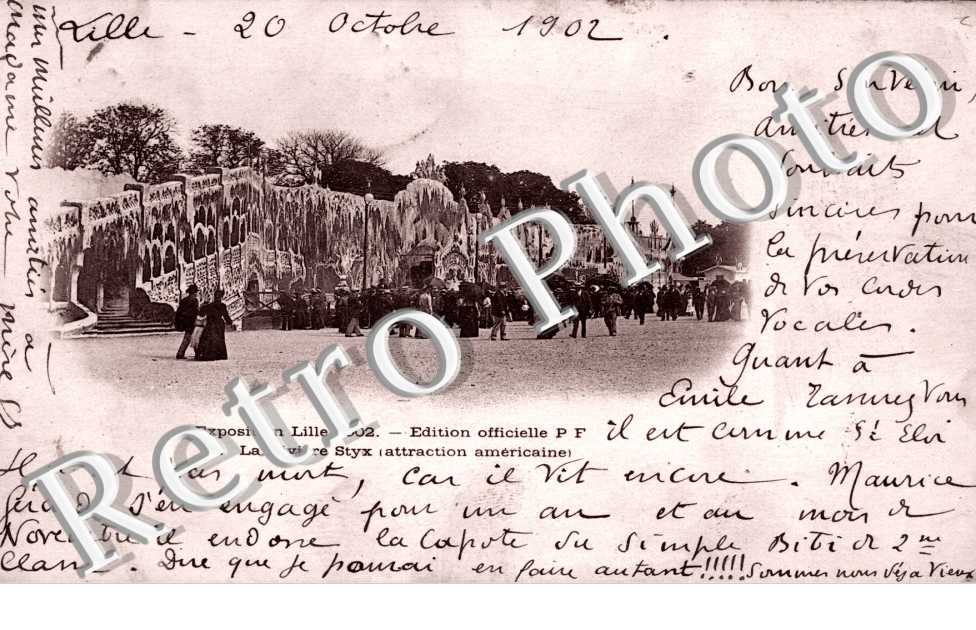 Lille - 20 Octobre 1902.
Bon Souvenir,
amitiés et
souhaits
sincères pour
la préservation
de vos cordes
vocales.
Quant à
Emile rassurez vous
il est comme St Eloi
Il n'est pas mort, car il vit encore. Maurice
Gérard s'en engagé pour un an et au mois de
Novembre il endosse la capote du simple Bibi de 2me
Classe. Dire que je pourrai en faire autant!!!!! Sommes nous déjà vieux
mes meilleures amitiés à
madame votre mère
Exposition Lille 1902. — Edition officielle P F
La Rivière Styx (attraction américaine)
Retro Photo